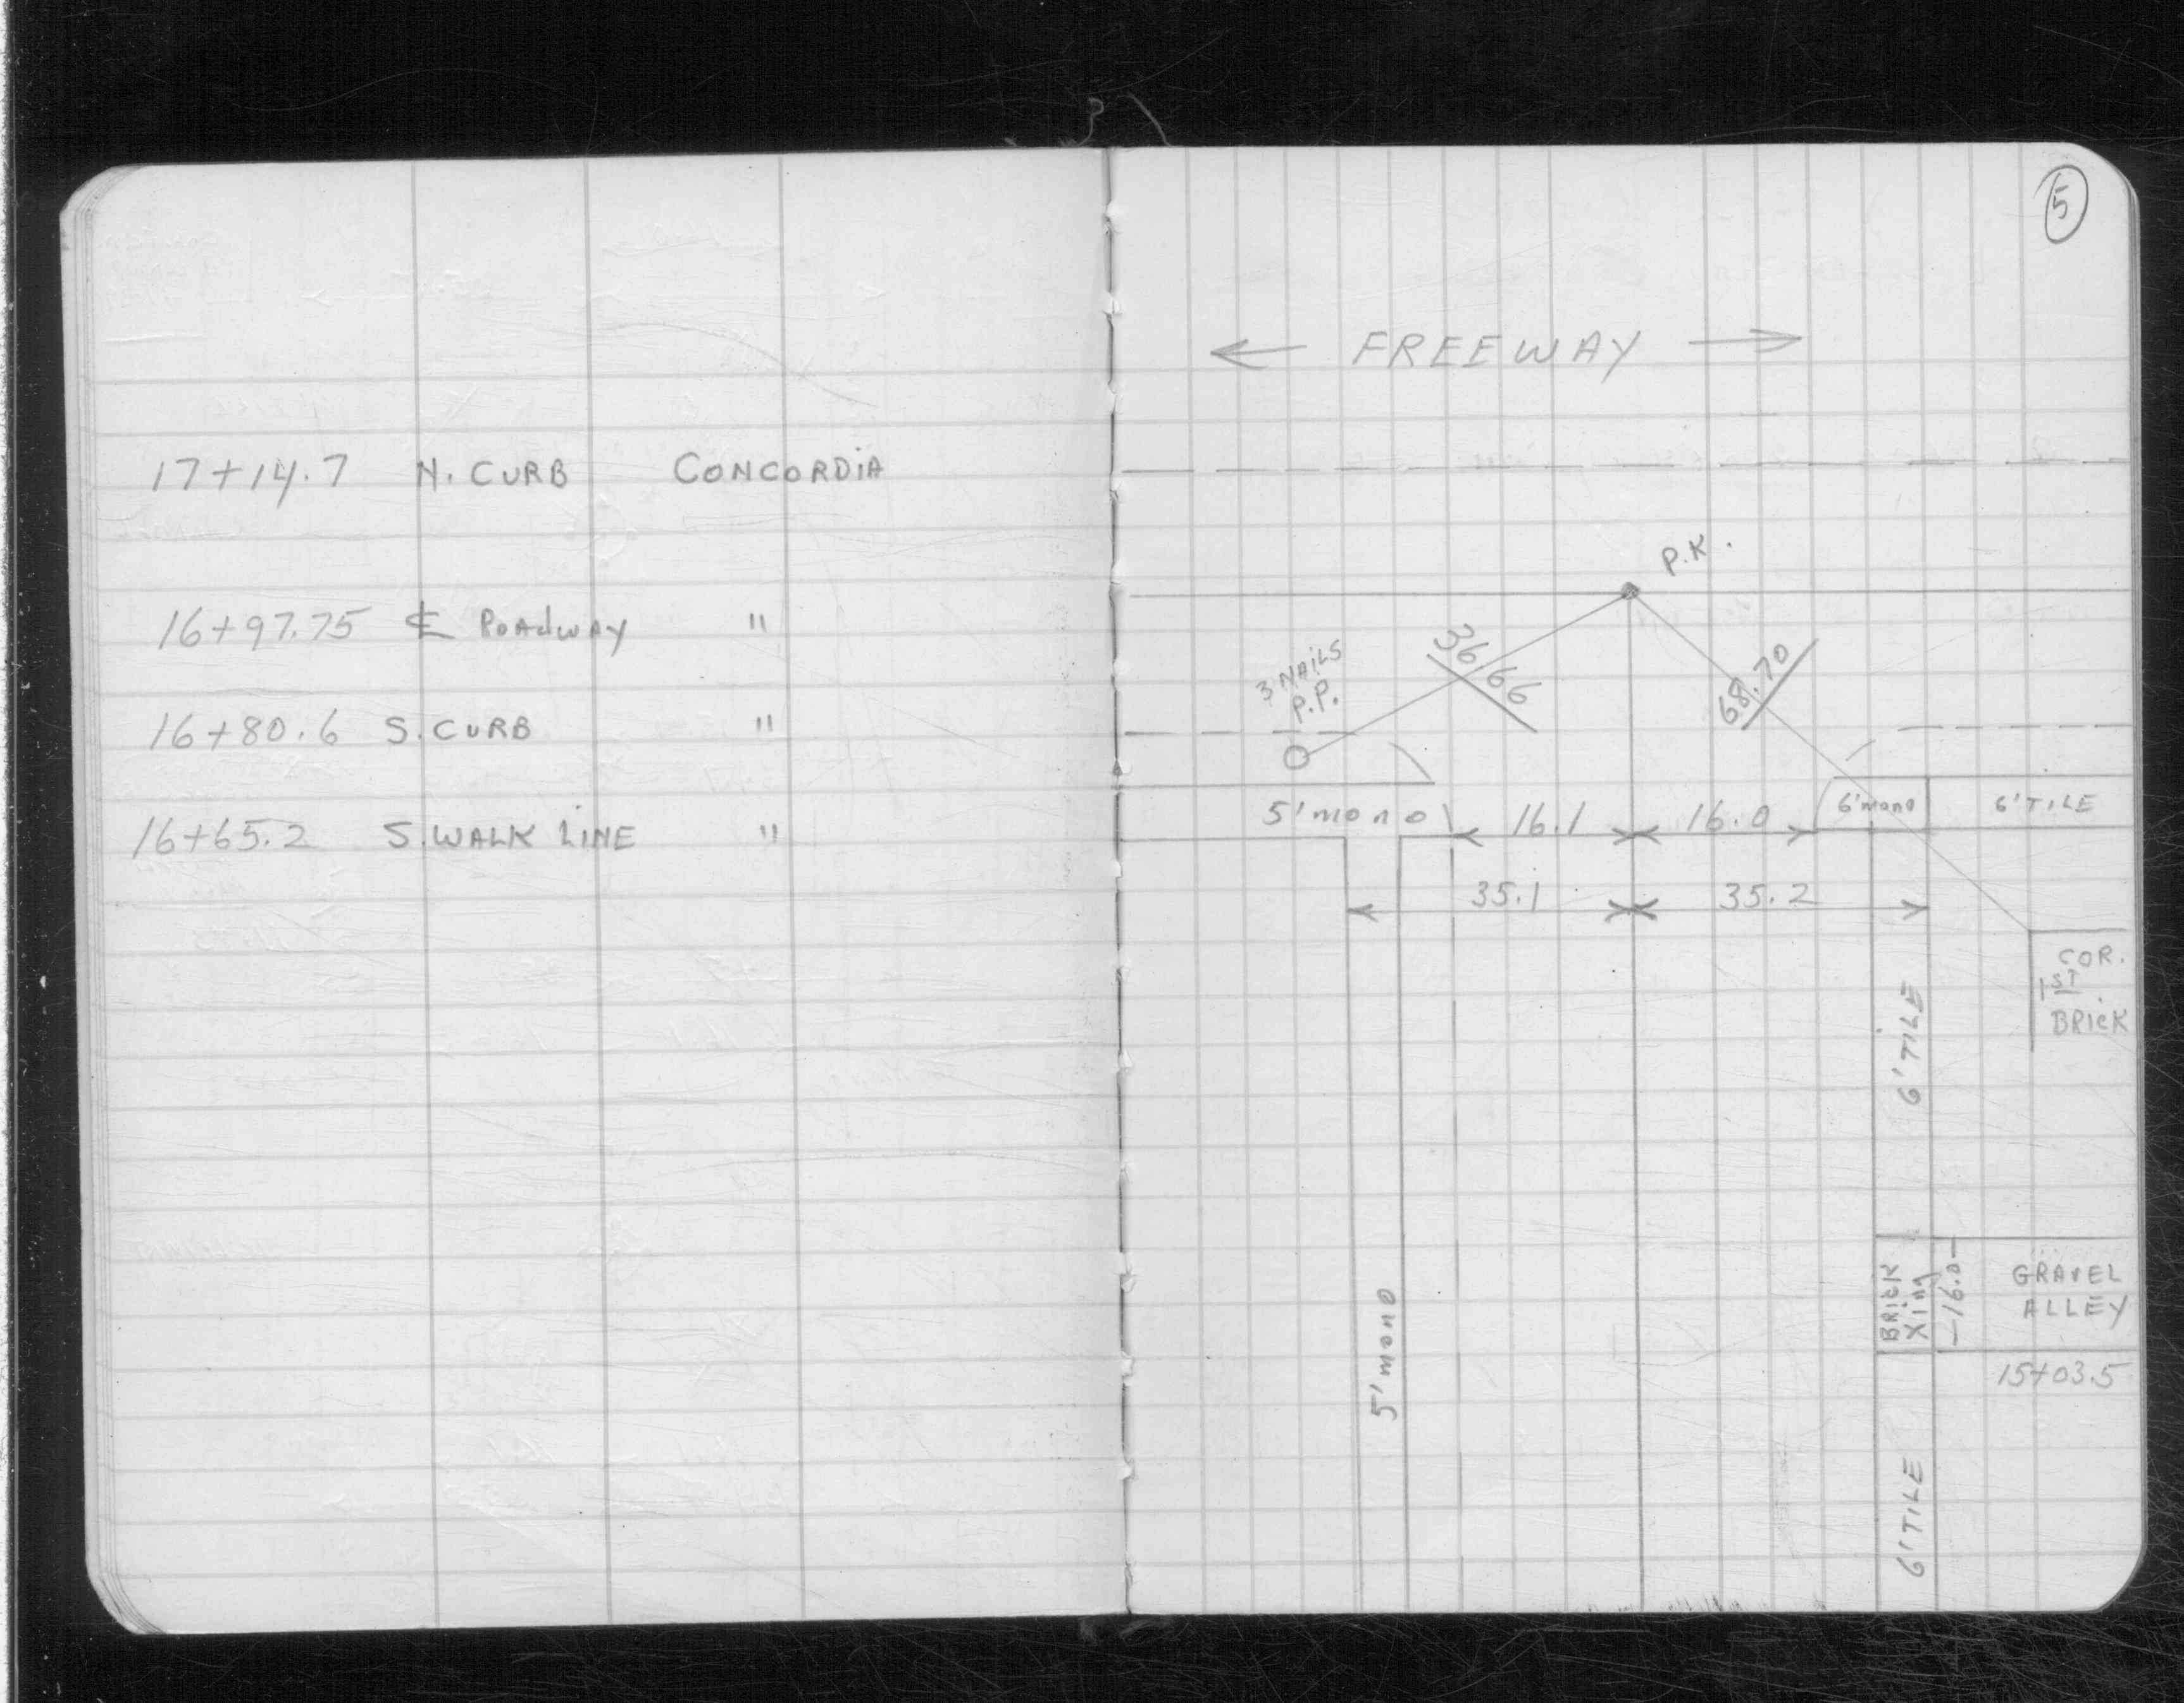 17+14.7 N. CURB CONCORDIA
16+97.75 ℄ ROADWAY "
16+80.6 S. CURB "
16+65.2 S. WALK LINE "
5
← FREEWAY →
P.K.
3 NAILS
P.P.
36.66
68.70
5' mono
16.1
16.0
6' mono
6' TILE
35.1
35.2
COR.
1ST
BRICK
6' TILE
BRICK
Xing
16.0
GRAVEL
ALLEY
15+03.5
5' mono
6' TILE